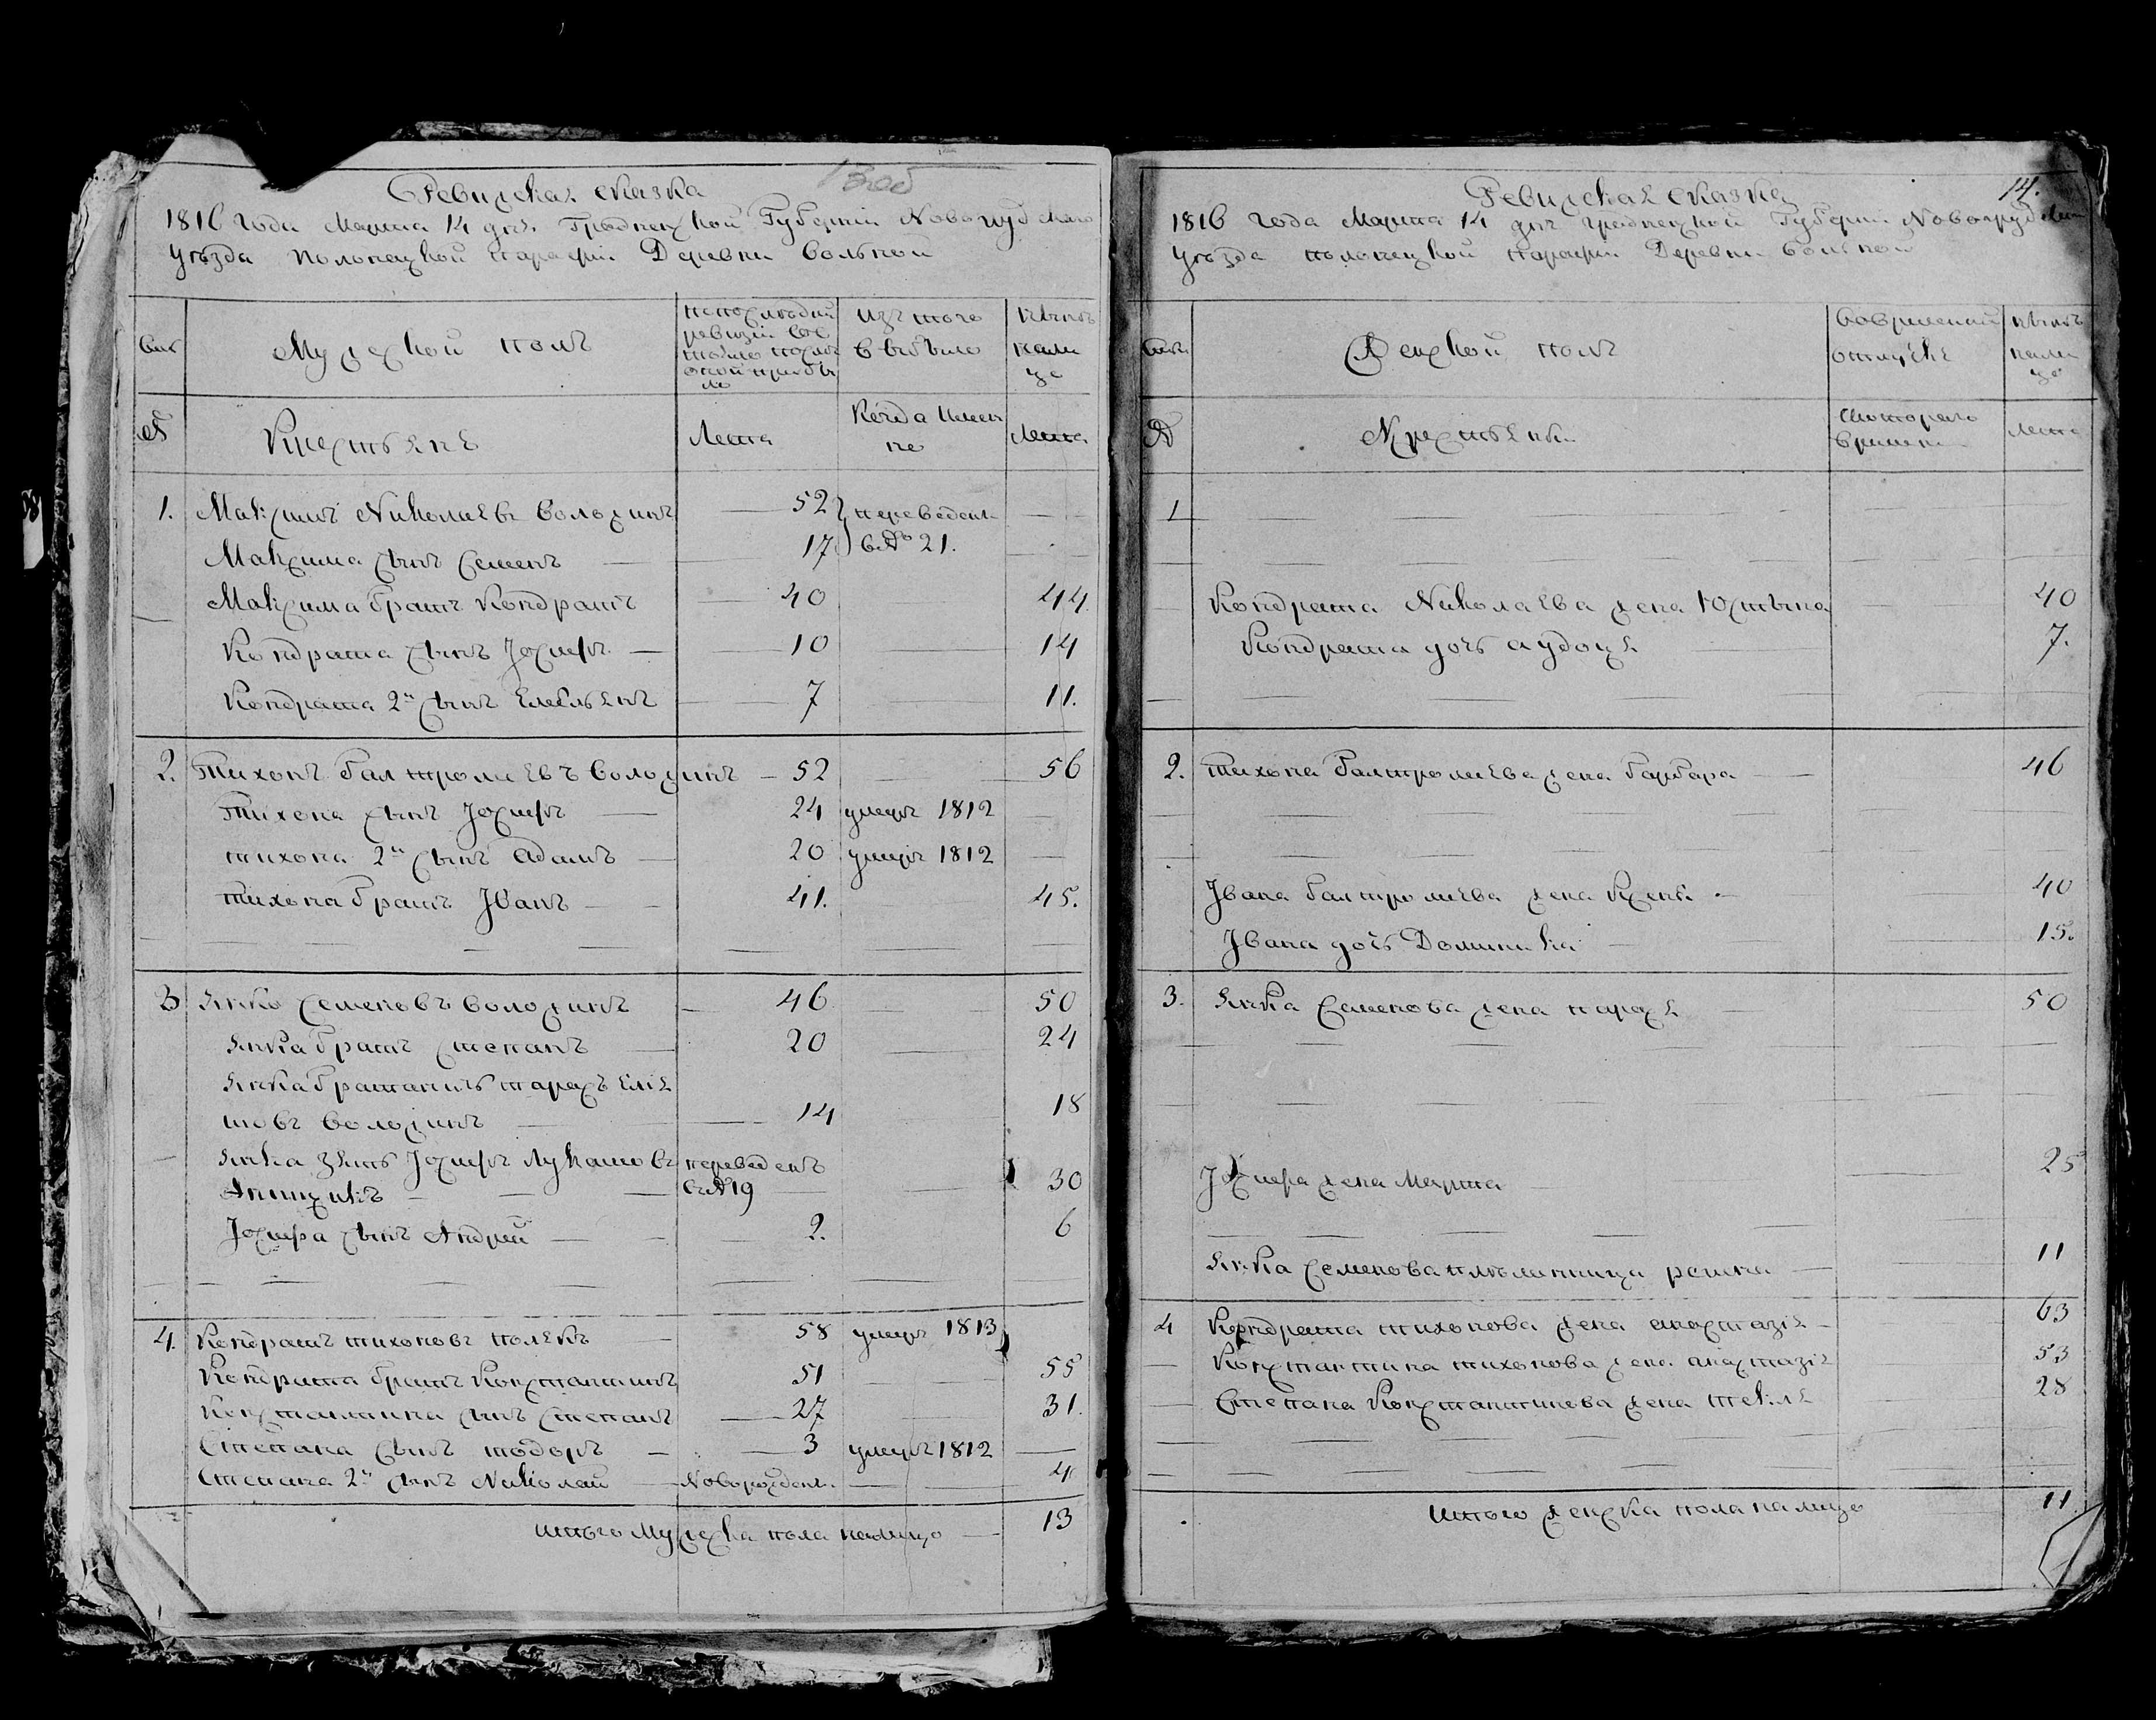 Ревижская сказка
1816 года Марта 14 дня Гродненской Губернии Новогрудскаго
уезда Полонецкой парафии Деревни Вольной
Мужеской полъ
по последней
ревизии сос
тояло и после
оной прибы
ло
изъ того
выбыло
ныне
нали
цо
№
Крестьяне
Лета
Когда имен
но
Лета
1. Максимъ Николаевъ Волосикъ 52 переведены
Максима сынъ Семенъ 17 в № 21.
Максима братъ Кондратъ 40 44
Кондрата сынъ Іосифъ 10 14
Кондрата 2й сынъ Емельянъ 7 11.
2. Тихонъ Балтромиевъ Волосикъ 52 56
Тихона сынъ Іосифъ 24 умеръ 1812
Тихона 2й сынъ Адамъ 20 умеръ 1812
Тихона братъ Іванъ 41. 45.
3 Янко Семеновъ Волосикъ 46 50
Янка братъ Степанъ 20 24
Янка братаничъ Тарасъ
Волосикъ 14 18
Янка зять Іосифъ Лукашовъ переведенъ
в № 19 30
Іосифа сынъ Андрей 2. 6
4. Кондратъ Тихоновъ Полякъ 58 умеръ 1813
Кондрата братъ Константинъ 51 55
Константина сынъ Степанъ 27 31.
Степана сынъ Тодоръ 3 умеръ 1812
Степана 2й сынъ Николай Новорожденъ 4
Итого Мужеска пола налицо 13
14.
Ревижская сказка
1816 года Марта 14 дня Гродненской Губернии Новогрудскаго
уезда Полонецкой парафии Деревни Вольной
Женской полъ
во временной
отлучке
ныне
нали
цо
№
Крестьянки
с котораго
времени
Лета
1
Кондрата Николаева жена Юстына 40
Кондрата дочь Аудоця 7.
2. Тихона Балтромиева жена Барбара 46
Івана Балтромиева жена Ксеня 40
Івана дочь Доминика 15.
3. Янка Семенова жена Парася 50
Іосифа жена Марта 25
Янка Семенова племянница 11
4 Кондрата Тихонова жена Анастазія 63
Константина Тихонова жена Анастазія 53
Степана Константинова жена Текля 28
Итого женска пола налицо 11